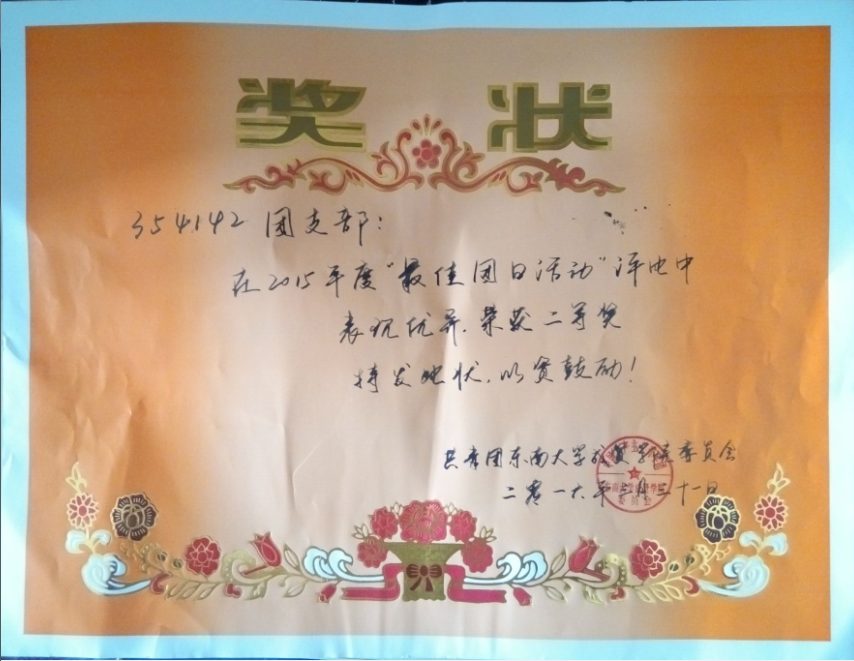 奖状
354142团支部：
在2015年度“最佳团日活动”评比中
表现优异，荣获二等奖
特发此状，以资鼓励！
共青团东南大学成贤学院委员会
二零一六年三月三十一日